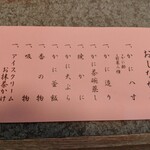 おしながき
一、かに八寸
一、かに造り
一、かに茶碗蒸し
一、焼かに
一、かに天ぷら
一、かに釜飯
一、香の物
一、止椀
一、アイスクリーム
お抹茶かけ